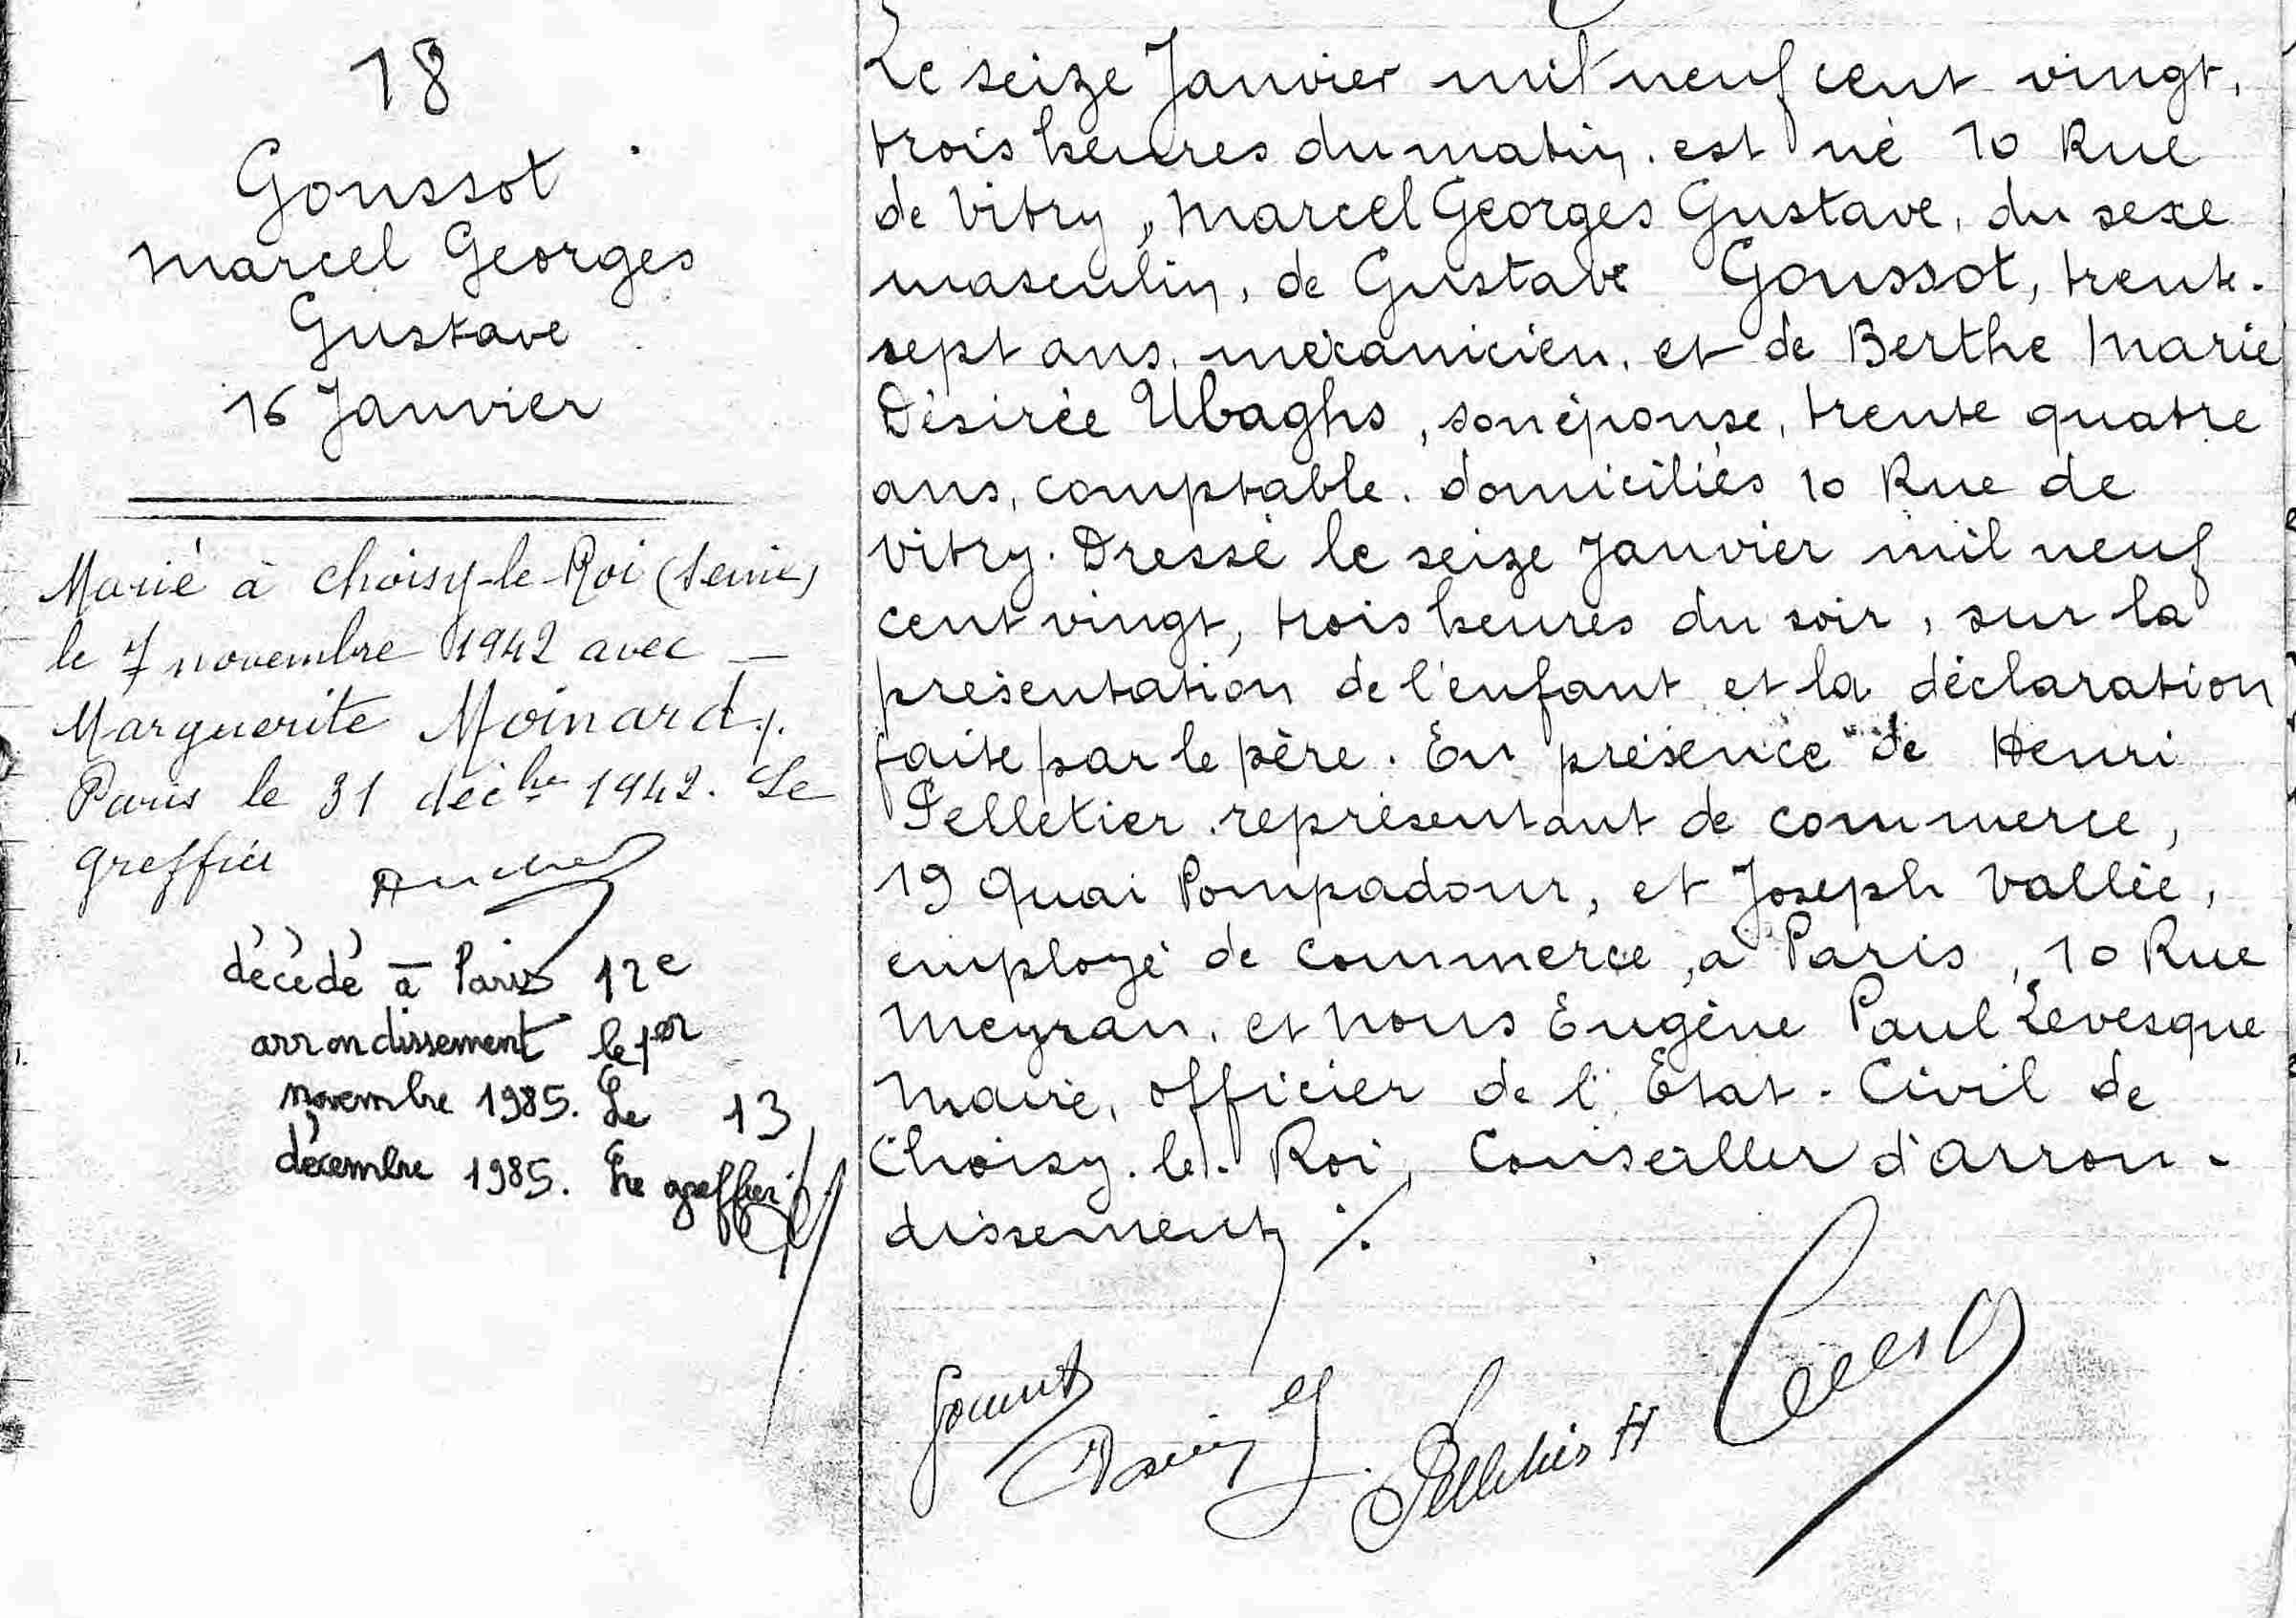 18
Goussot
Marcel Georges
Gustave
16 Janvier
Marié à Choisy-le-Roi (Seine)
le 7 novembre 1942 avec —
Marguerite Moinard ./.
Paris le 31 déc bre 1942. Le
greffier
décédé à Paris 12e
arrondissement le 1er
novembre 1985. Le 13
décembre 1985. Le greffier
Le seize Janvier mil neuf cent vingt,
trois heures du matin. est né 10 Rue
de Vitry, Marcel Georges Gustave, du sexe
masculin, de Gustave Goussot, trente-
sept ans, mécanicien, et de Berthe Marie
Désirée Ubaghs, son épouse, trente quatre
ans, comptable. domiciliés 10 Rue de
Vitry. Dressé le seize Janvier mil neuf
cent vingt, trois heures du soir, sur la
présentation de l'enfant et la déclaration
faite par le père. En présence de Henri
Pelletier, représentant de commerce,
19 Quai Pompadour, et Joseph Vallée,
employé de commerce, à Paris, 10 Rue
Meyran, et Nous Eugène Paul Levesque
Maire, officier de l'Etat-Civil de
Choisy-le-Roi, Conseiller d'Arron-
dissement ./.
Goussot
Pelletier H